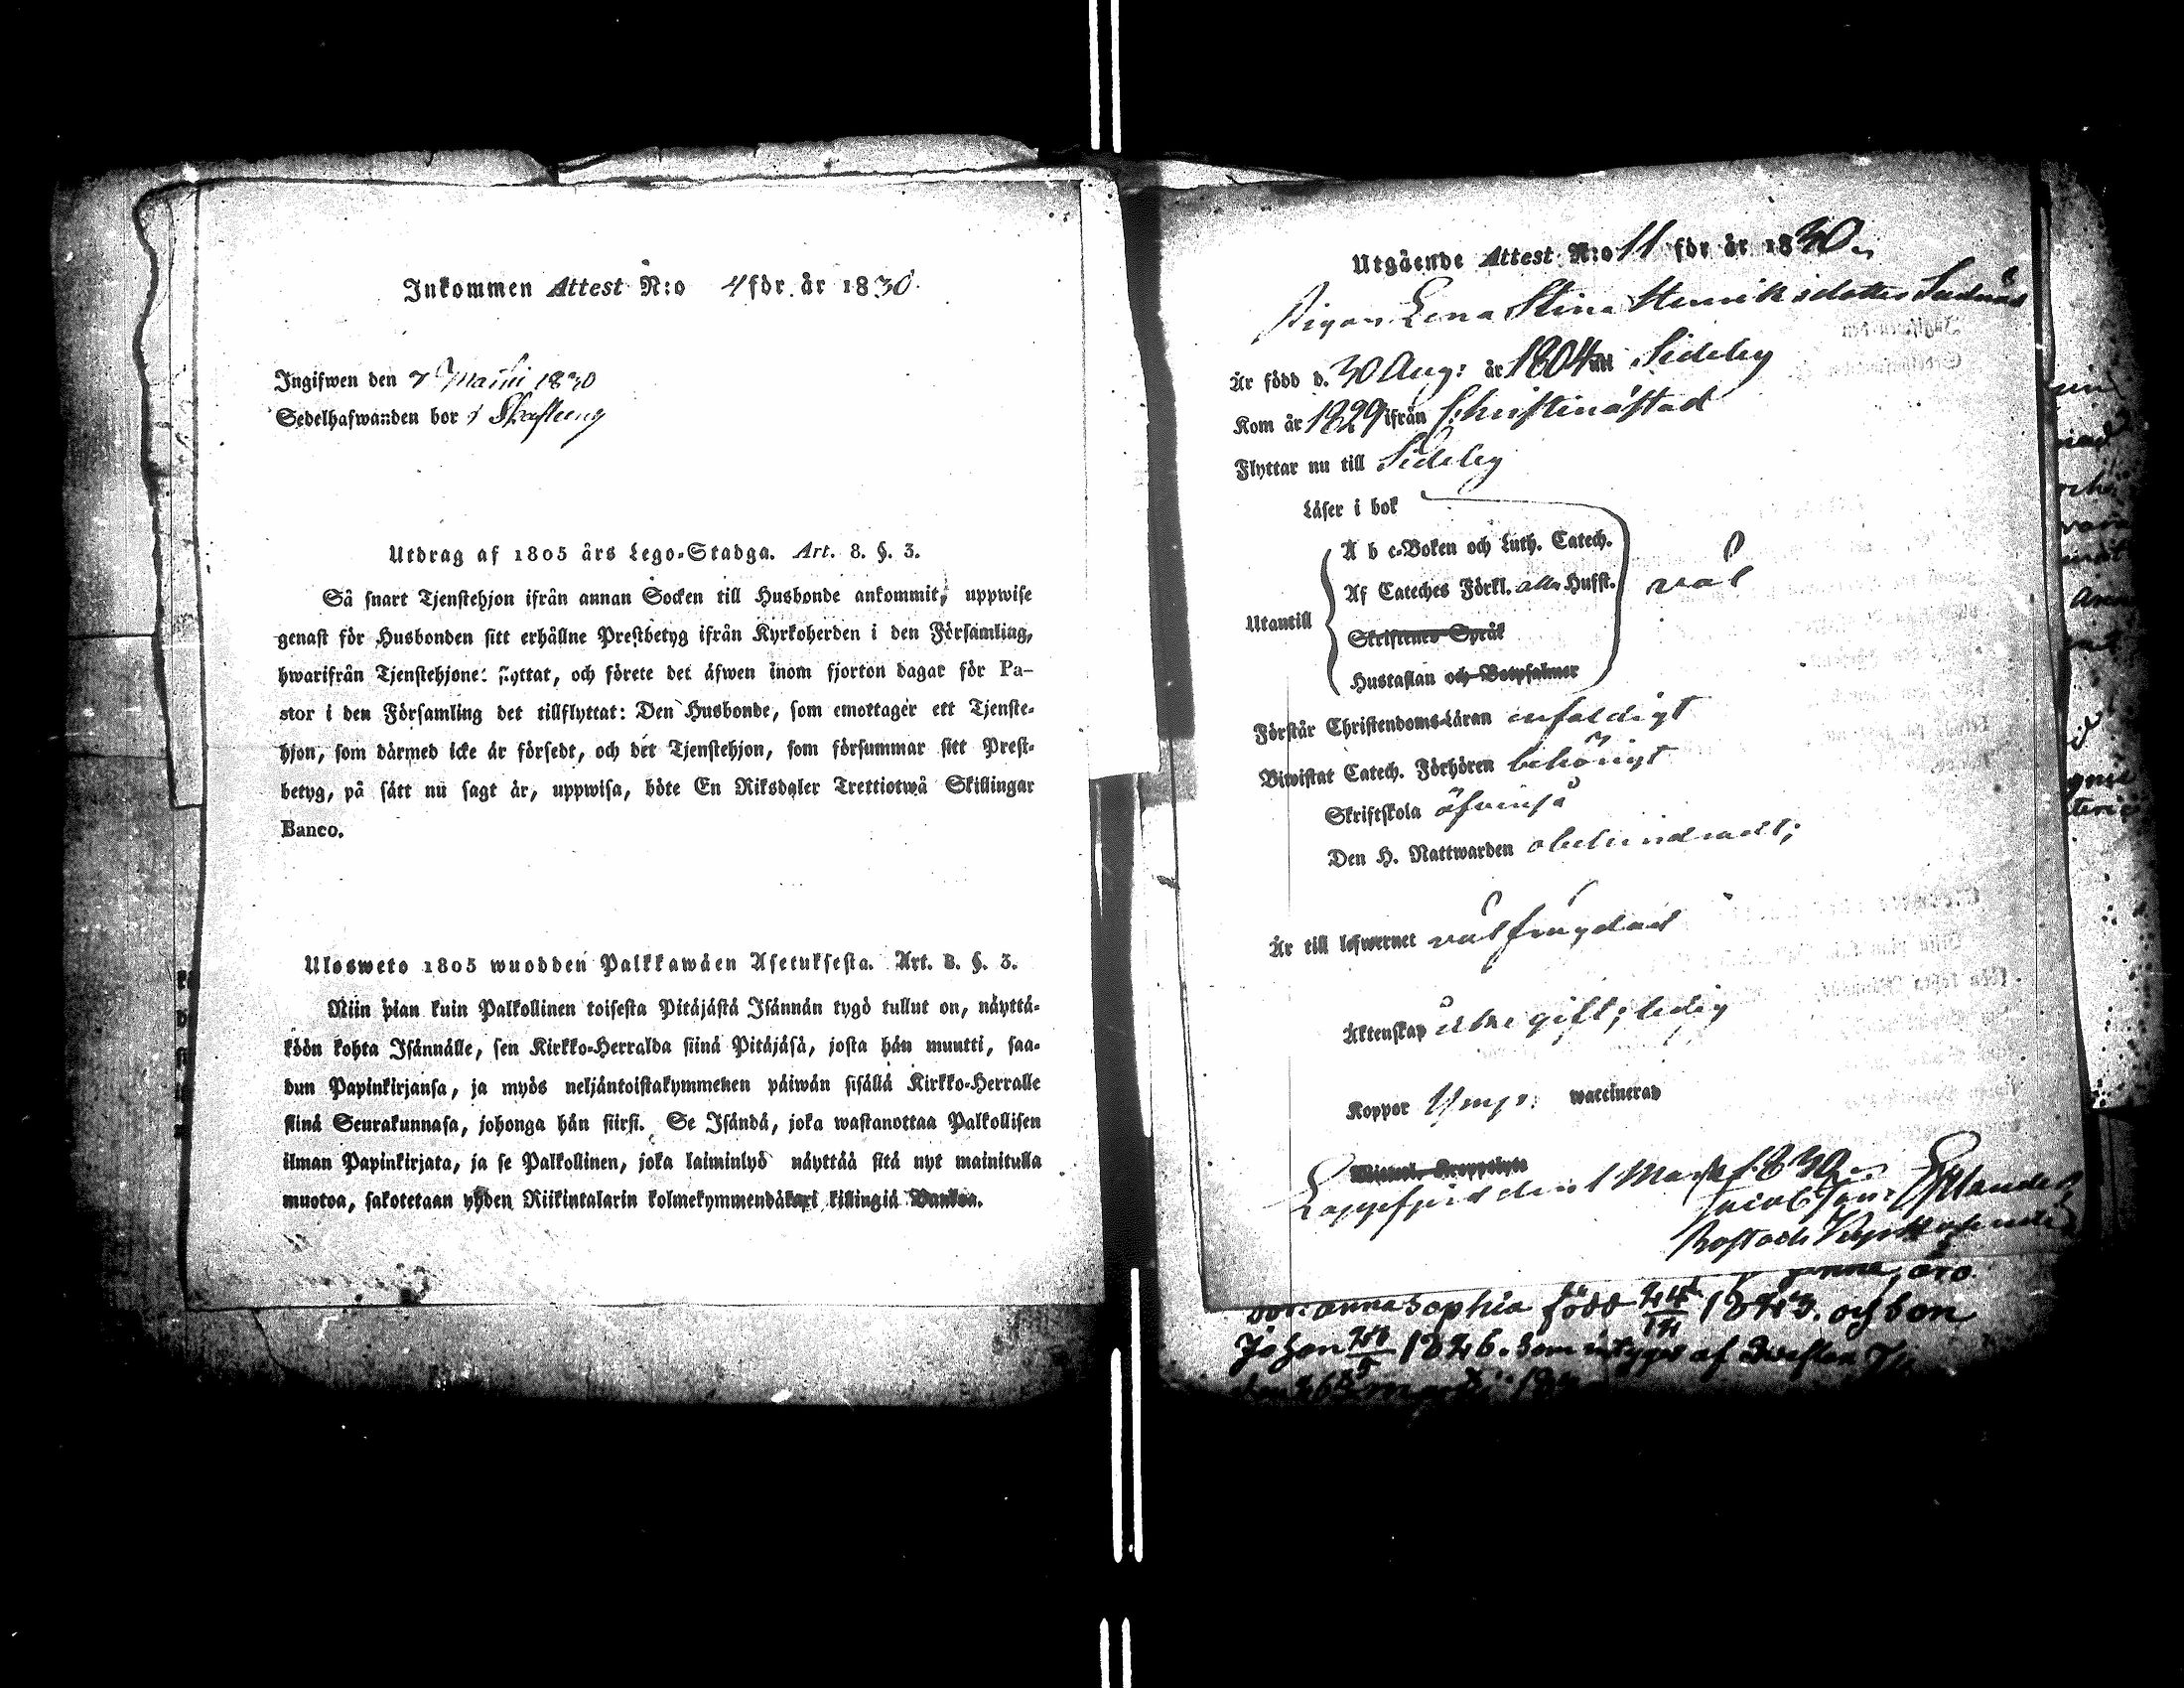 Inkommen Attest N:o 4 för år 1830.
Ingifwen den 7 Martii 1830
Sedelhafwanden bor i Skaftung
Utdrag af 1805 års Lego-Stadga. Art. 8. §. 3.
Så snart Tjenstehjon ifrån annan Socken till Husbonde ankommit, uppwise
genast för Husbonden sitt erhållne Prestbetyg ifrån Kyrkoherden i den Församling,
hwarifrån Tjenstehjonet flyttat, och förete det äfwen inom fjorton dagar för Pa-
stor i den Församling det tillflyttat: Den Husbonde, som emottager ett Tjenste-
hjon, som därmed icke är försedt, och det Tjenstehjon, som försummar sitt Prest-
betyg, på sätt nu sagt är, uppwisa, böte En Riksdaler Trettiotwå Skillingar
Banco.
Ulosweto 1805 wuodden Palkkawäen Asetuksesta. Art. 8. §. 3.
Niin pian kuin Palkollinen toisesta Pitäjästä Isännän tygö tullut on, näyttä-
köön kohta Isännälle, sen Kirkko-Herralda siinä Pitäjäsä, josta hän muutti, saa-
dun Papinkirjansa, ja myös neljäntoistakymmenen päiwän sisällä Kirkko-Herralle
siinä Seurakunnasa, johonga hän siirsi. Se Isändä, joka wastanottaa Palkollisen
ilman Papinkirjata, ja se Palkollinen, joka laiminlyö näyttää sitä nyt mainitulla
muotoa, sakotetaan yhden Riikintalarin kolmekymmendäkaxi killingiä Bankoa.
Utgående Attest N:o 11 för år 1830.
Pigan Lena Stina Henriksdotter
Är född d. 30 Aug: år 1804 Sideby
Kom år 1829 ifrån Christinästad
Flyttar nu till Sideby
Läser i bok
A b c-Boken och Luth. Catech.
Af Cateches Förkl. alla Hufst. väl
Utantill
Skriftenes Språk
Hustaflan och Botpsalmer
Förstår Christendoms-Läran enfaldigt
Biwistat Catech. Förhören behörigt
Skriftskola äfvenså
Den H. Nattwarden obehindradt;
Är till lefwernet välfrägdad
Äktenskap icke gift; ledig
Koppor waccinerad
Lappfjerd den 1 Mars 1830.
Jacob
Past och Kyrkoherde
Anna Sophia född 1843. och Son
Johan 1846. Som intygar af